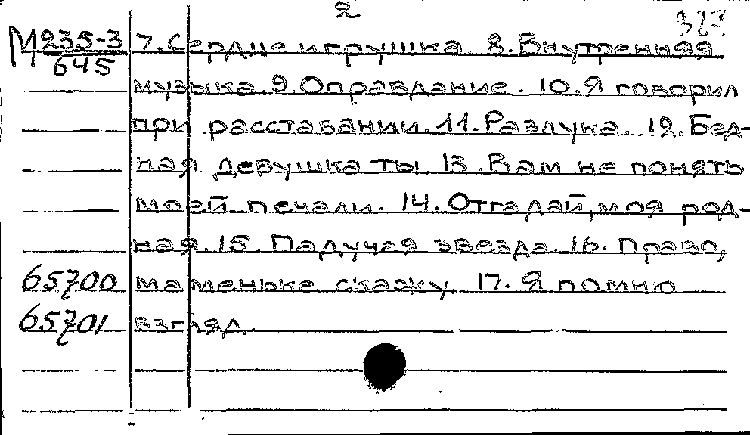 2
323
М 235-3/645 7. Сердце игрушка. 8. Внутренняя
музыка. 9. Оправдание. 10. Я говорил
при расставании. 11. Разлука. 12. Бед-
ная девушка ты. 13. Вам не понять
моей печали. 14. Отгадай, моя род-
ная. 15. Падучая звезда. 16. Право,
65700 маменьке скажу. 17. Я помню
65701 взгляд.